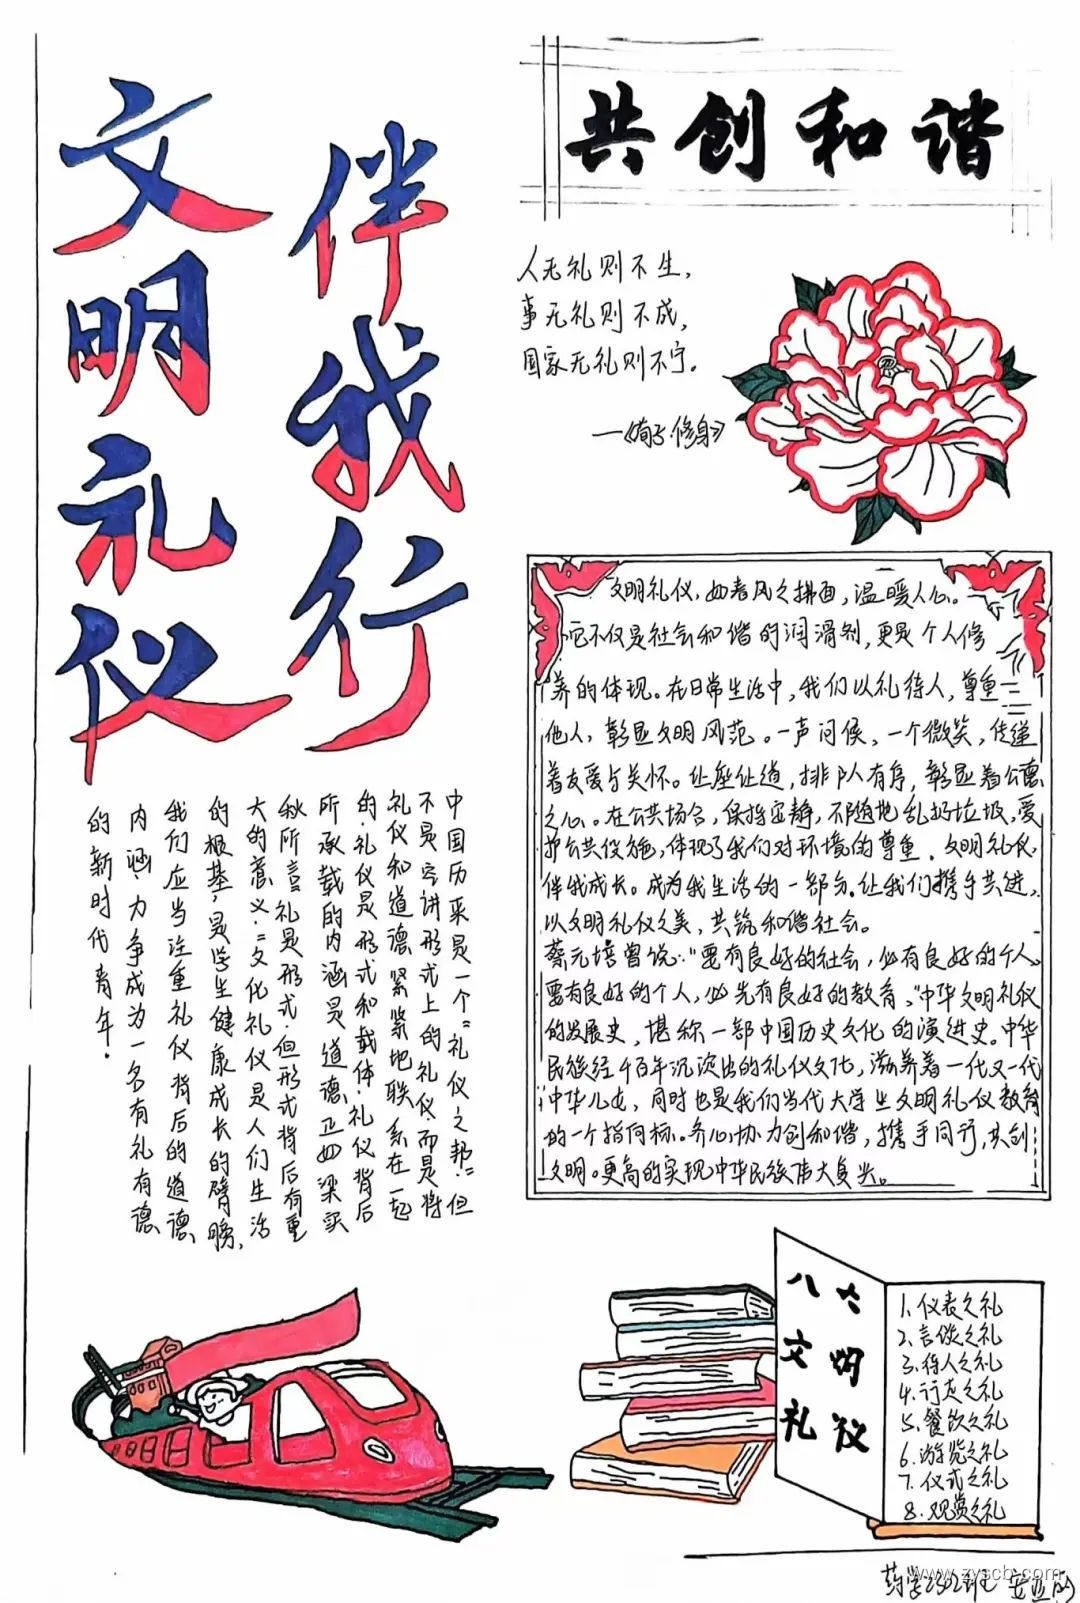 文明礼仪
伴我行
共创和谐
人无礼则不生,
事无礼则不成,
国家无礼则不宁。
—《荀子·修身》
文明礼仪,如春风之拂面,温暖人心。
它不仅是社会和谐的润滑剂,更是个人修
养的体现。在日常生活中,我们以礼待人,尊重
他人,彰显文明风范。一声问候,一个微笑,传递
着友爱与关怀。让座让道,排队有序,彰显着公德
之心。在公共场合,保持安静,不随地乱扔垃圾,爱
护公共设施,体现了我们对环境的尊重。文明礼仪,
伴我成长。成为我生活的一部分。让我们携手共进,
以文明礼仪之美,共筑和谐社会。
蔡元培曾说:"要有良好的社会,必有良好的个人,
要有良好的个人,必先有良好的教育。"中华文明礼仪
的发展史,堪称一部中国历史文化的演进史。中华
民族经千百年沉淀出的礼仪文化,滋养着一代又一代
中华儿女,同时也是我们当代大学生文明礼仪教育
的一个指向标。齐心协力创和谐,携手同行,共创
文明。更高的实现中华民族伟大复兴。
中国历来是一个"礼仪之邦"但
不是空讲形式上的礼仪而是将
礼仪和道德紧紧地联系在一起
的.礼仪是形式和载体.礼仪背后
所承载的内涵是道德.正如梁实
秋所言"礼是形式.但形式背后有重
大的意义."文化礼仪是人们生活
的根基,是学生健康成长的臂腕,
我们应当注重礼仪背后的道德
内涵力争成为一名有礼有德
的新时代青年.
八大
文明
礼仪
1.仪表之礼
2.言谈之礼
3.待人之礼
4.行走之礼
5.餐饮之礼
6.游览之礼
7.仪式之礼
8.观赏之礼
药学2302班
www.zyscb.com